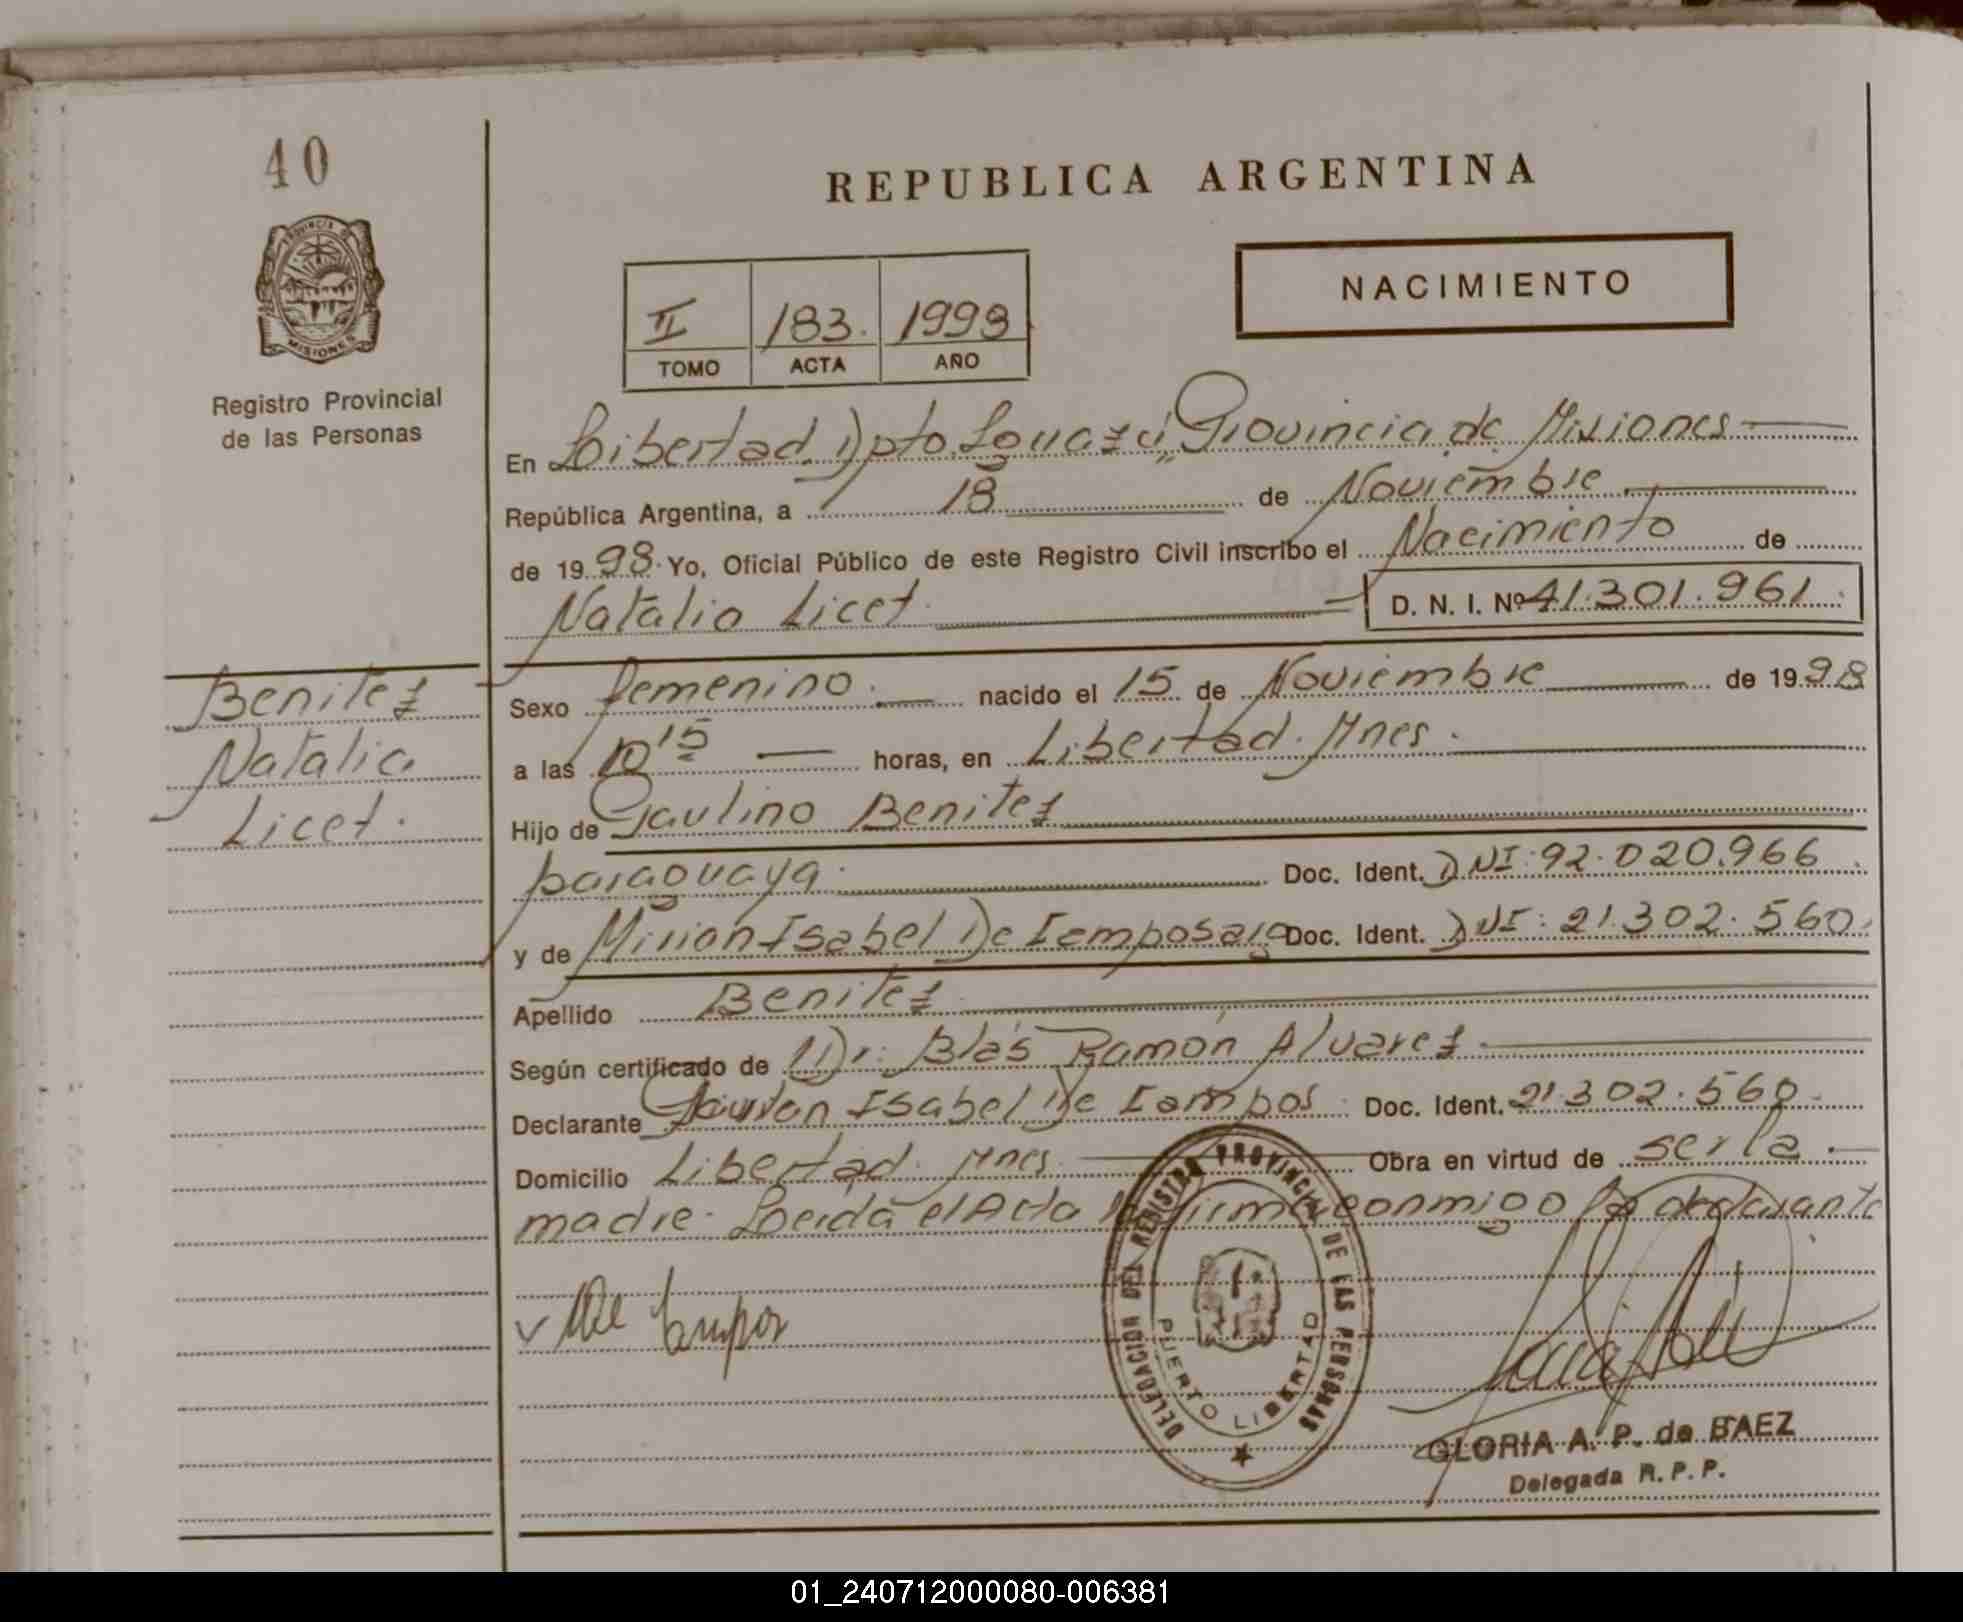 40
REPUBLICA ARGENTINA
PROVINCIA DE
MISIONES
NACIMIENTO
II 183. 1998
TOMO ACTA AÑO
Registro Provincial
de las Personas
En Libertad. Dpto. Iguazú, Provincia de Misiones
República Argentina, a 18 de Noviembre
de 1998. Yo, Oficial Público de este Registro Civil inscribo el Nacimiento de
Natalia Licet. D. N. I. Nº 41.301.961.
Benitez
Natalia
Licet.
Sexo femenino. nacido el 15 de Noviembre de 1998
a las 10 15 horas, en Libertad. Mnes.
Hijo de Paulino Benitez
paraguaya. Doc. Ident. DNI: 92.020.966.
y de Mirian Isabel De Doc. Ident. DNI: 21.302.560.
Apellido Benitez
Según certificado de Dr. Blás Ramón Alvarez
Declarante Isabel De Campos. Doc. Ident. 21.302.560.
Domicilio Libertad. Mnes. Obra en virtud de ser la
madre. Leida el Acta firma conmigo la declarante
De Campos
DELEGACION DEL REGISTRO PROVINCIAL DE LAS PERSONAS
PUERTO LIBERTAD
GLORIA A. P. de BAEZ
Delegada R. P. P.
01_240712000080-006381